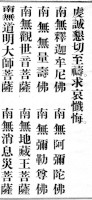 虔誠懇切至禱求哀懺悔
南無釋迦牟尼佛 南無阿彌陀佛
南無無量壽佛 南無彌勒尊佛
南無觀世音菩薩 南無地藏王菩薩
南無道明大師菩薩 南無消息災菩薩